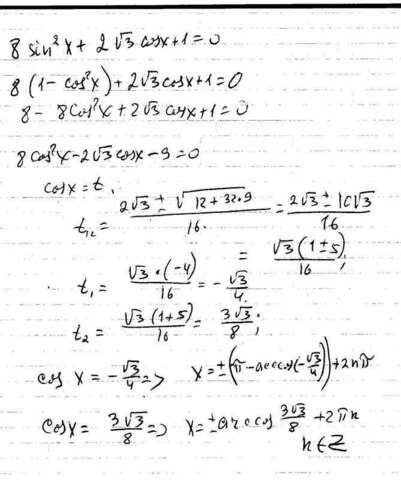 8 sin²x + 2√3 cosx + 1 = 0
8 (1 - cos²x) + 2√3 cosx + 1 = 0
8 - 8cos²x + 2√3 cosx + 1 = 0
8cos²x - 2√3cosx - 9 = 0
cosx = t.
t₁₂ = (2√3 ± √(12 + 32·9))/16. = (2√3 ± 10√3)/16
= √3(1 ± 5)/16;
t₁ = √3·(-4)/16 = -√3/4.
t₂ = √3(1+5)/16 = 3√3/8;
cos x = -√3/4 => x = ±(π - arccos(-√3/4)) + 2nπ
cosx = 3√3/8 => x = ±arccos 3√3/8 + 2πn
n∈Z